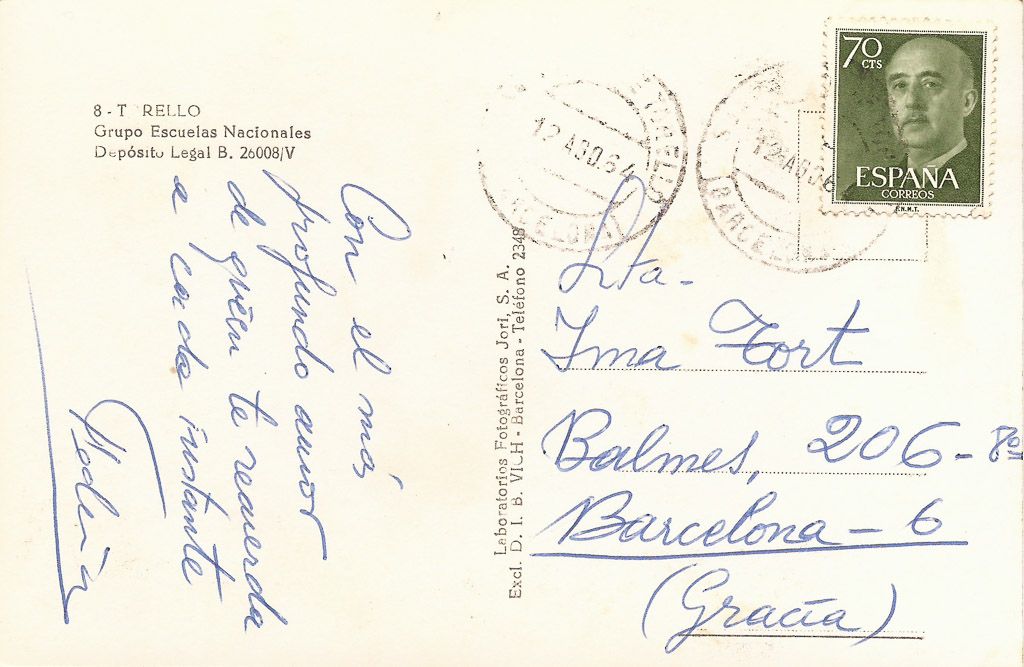 8 - T RELLO
Grupo Escuelas Nacionales
Depósito Legal B. 26008/V
Con el más
profundo amor
de quien te recuerda
a cada instante
Excl. Laboratorios Fotográficos Jori, S. A.
D. I. B. VICH - Barcelona - Teléfono 2348
TORELLO
12 AGO 64
BARCELONA
12 AGO 6
BARCELONA
70
CTS
ESPAÑA
CORREOS
F.N.M.T.
Srta.
Ima Tort
Balmes, 206 -
Barcelona - 6
(Gracia)